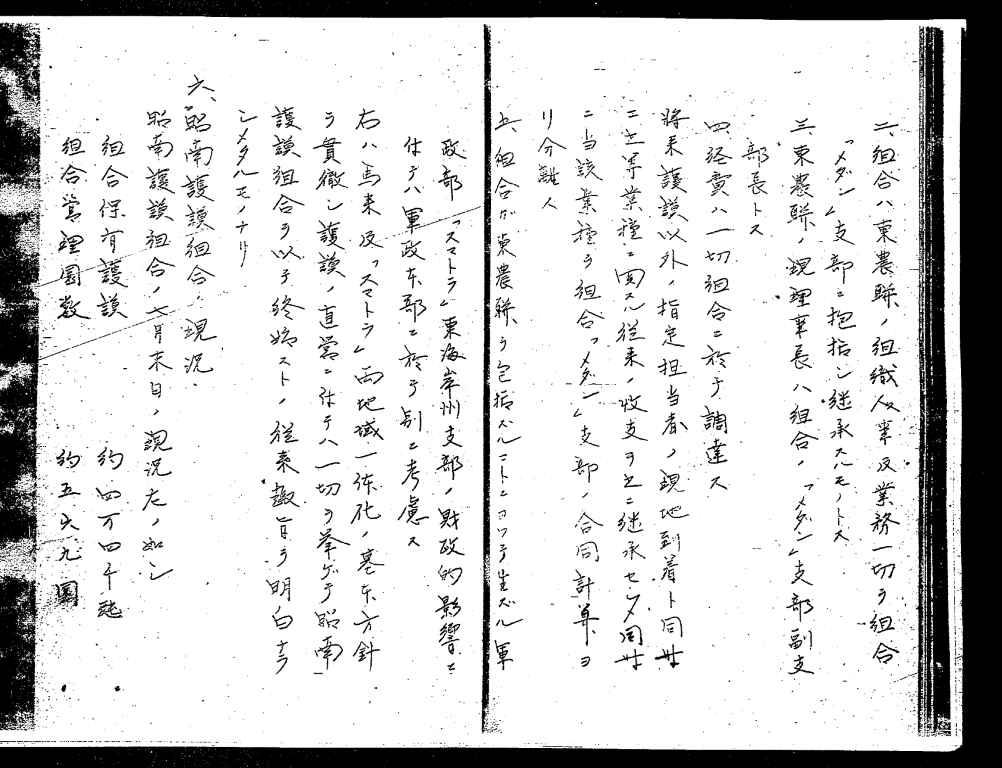 二、組合ハ東農聯ノ組織人事及業務一切ヲ組合
「メダン」支部ニ抱括シ継承スルモノトス
三、東農聯ノ現理事長ハ組合ノ「メダン」支部副支
部長トス
四、経費ハ一切組合ニ於テ調達ス
将来護謨以外ノ指定担当者ノ現地到着ト同時
ニ之等業種ニ関スル従来ノ収支ヲ之ニ継承セシメ同時
ニ当該業種ヲ組合「メダン」支部ノ合同計算ヨ
リ分離ス
五、組合ガ東農聯ヲ包括スルコトニヨツテ生ズル軍
政部「スマトラ」東海岸州支部ノ財政的影響ニ
付テハ軍政本部ニ於テ別ニ考慮ス
右ハ馬来及「スマトラ」両地域一体化ノ基本方針
ヲ貫徹シ護謨ノ直営ニ付テハ一切ヲ挙ゲテ昭南
護謨組合ヲ以テ終始ストノ従来趣旨ヲ明白ナラ
シメタルモノナリ
六、昭南護謨組合ノ現況
昭南護謨組合ノ七月末日ノ現況左ノ如シ
組合保有護謨 約四万四千瓲
組合営理園数 約五六九園